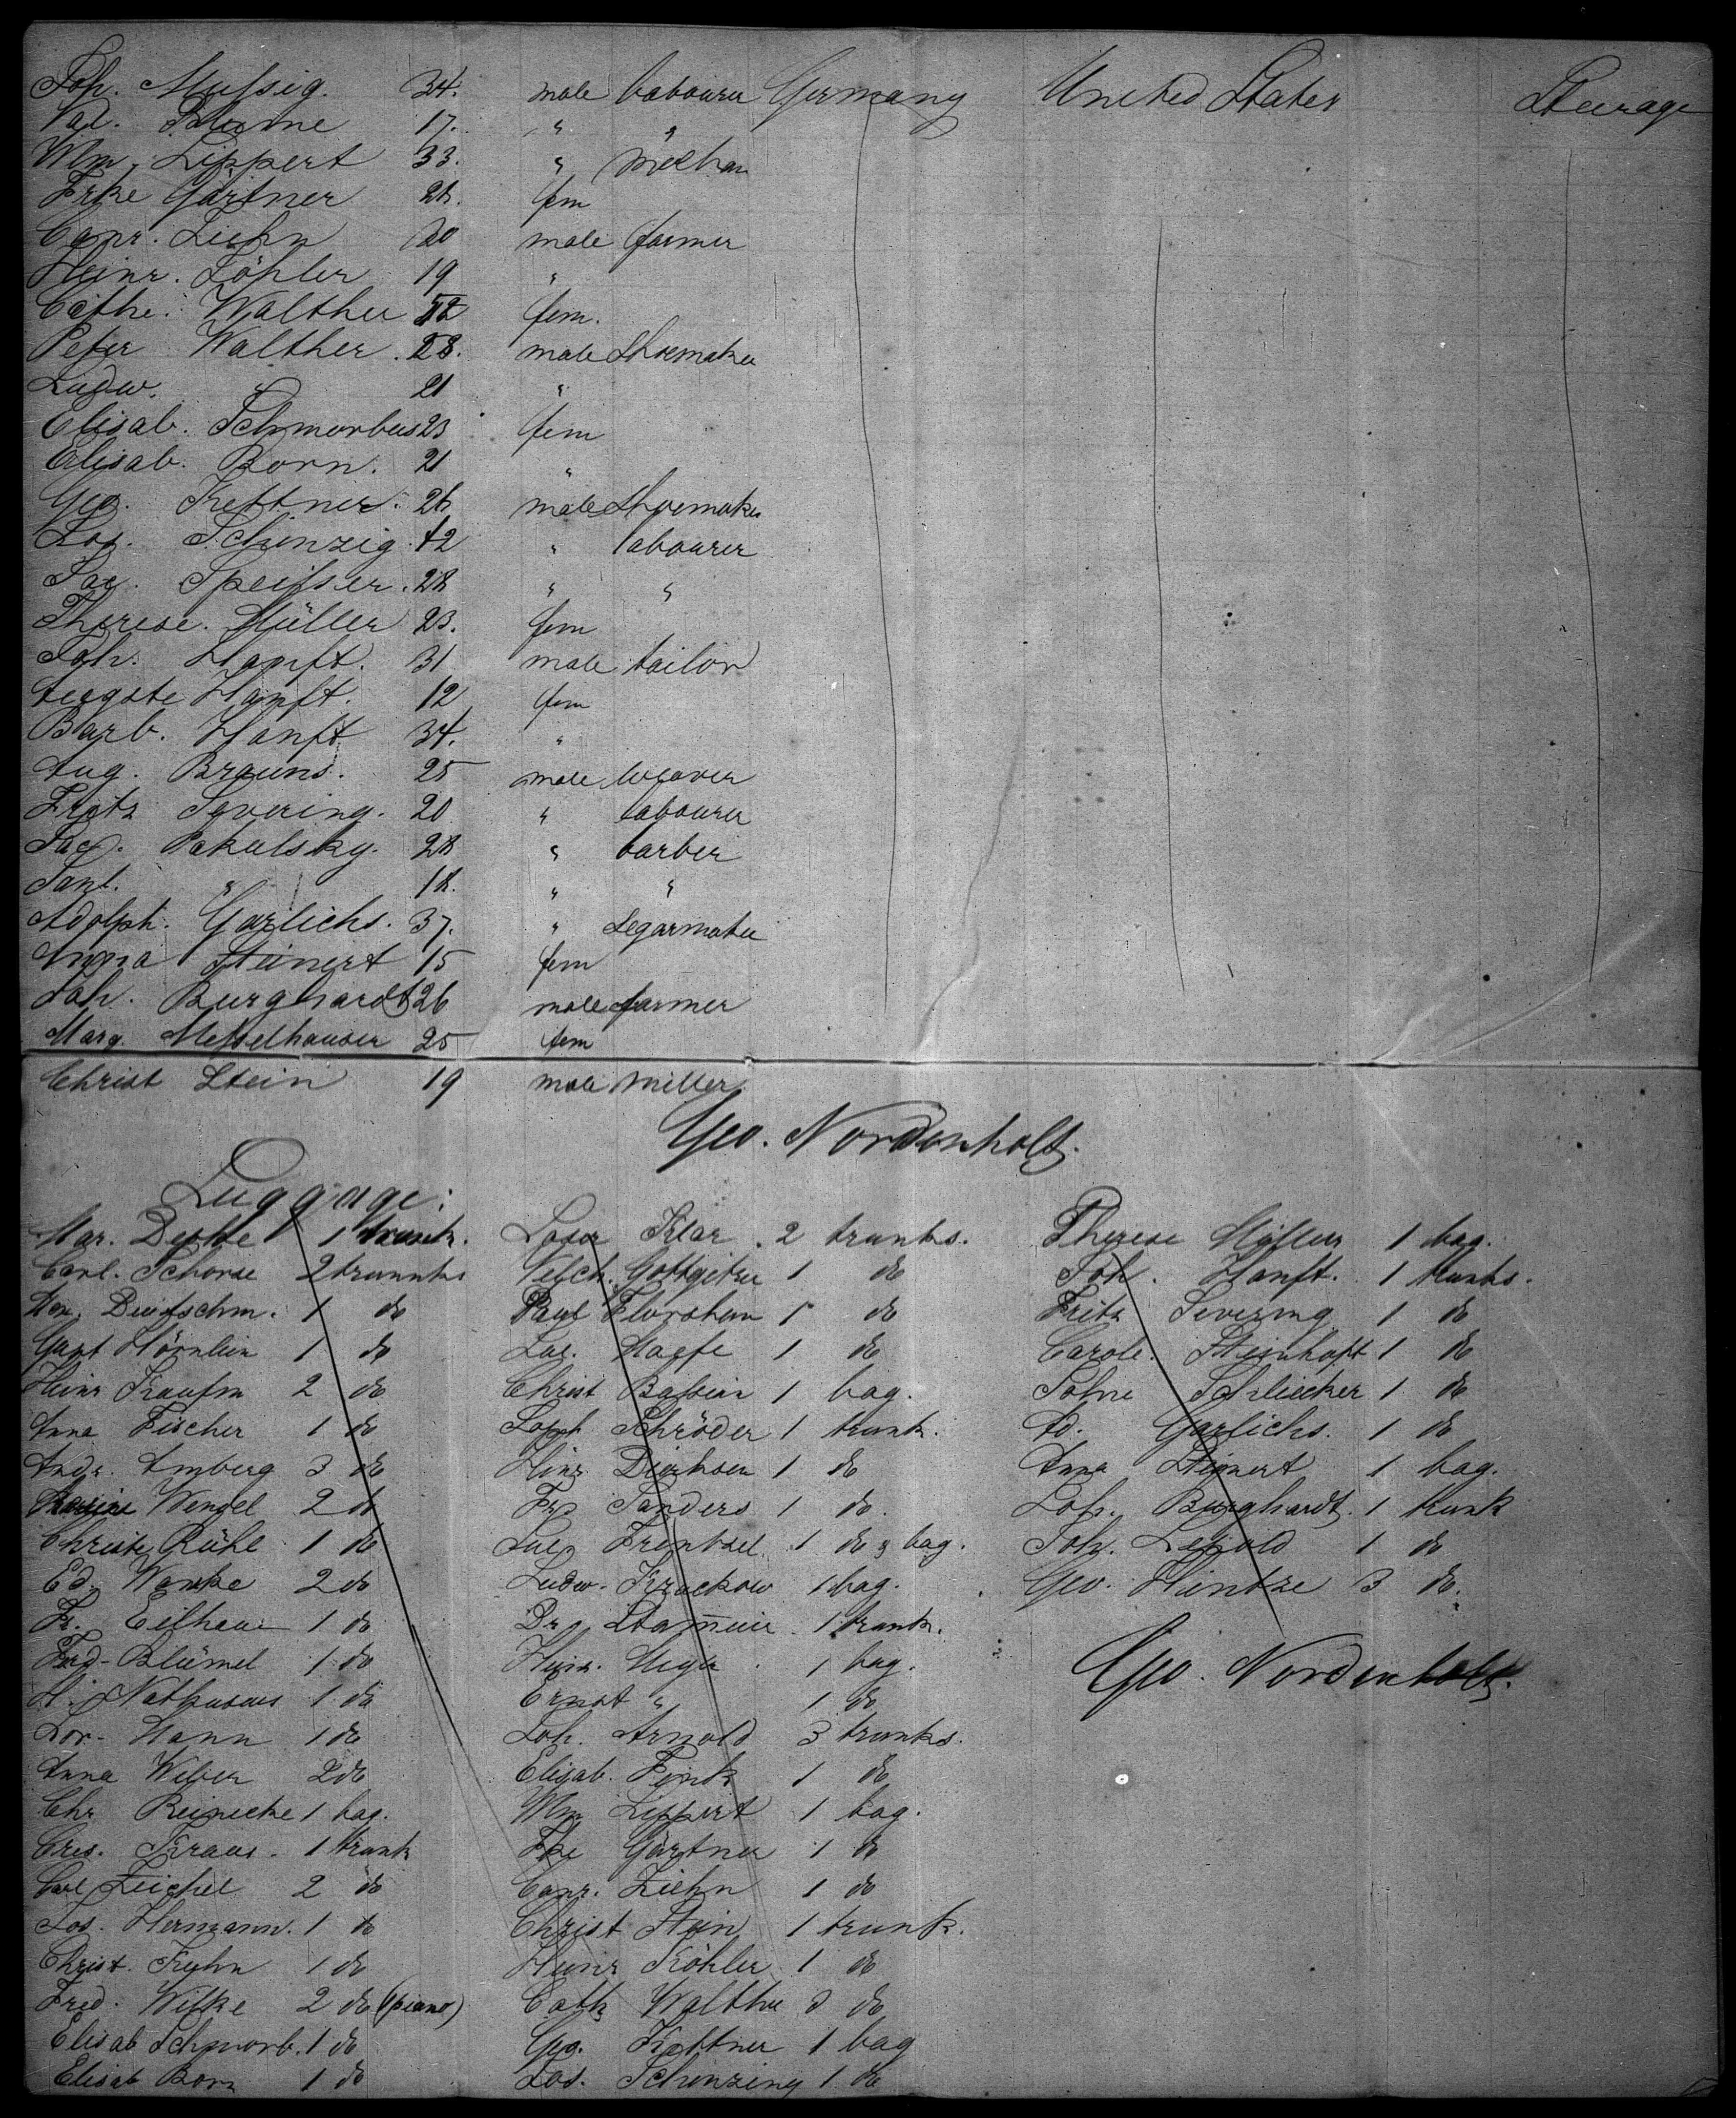 Joh. Mussig. 34. male labourer Germany United States Steerage
Val. Blume 17. " "
Wm. Lippert 33. " mechan
Frke Gärtner 21. fem
Conr. Ziehn 20 male farmer
Heinr. Köhler 19 "
Cathe. Walther 52 fem.
Peter Walther. 28. male Shoemaker
Ludw. " 21 "
Elisab. Schmorbus 23 fem
Elisab. Born. 21 "
Geo. Kettner. 26 male Shoemaker
Jos. Schinzig. 42 " labourer
Jac. Speisser. 28 " "
Therese. Müller 23. fem
Joh. Hanft. 31 male tailor
Augste Hanft. 12 fem
Barb. Hanft 34. "
Aug. Brauns. 25 male weaver
Fritz Severing. 20 " labourer
Jac. Pakulsky. 28 " barber
Saml. " 18. " "
Adolph. Garlichs. 37. " Segarmaker
Anna Steinert 15 fem
Joh. Burghardt 26 male farmer
Marg. Messelhauser 25 fem
Christ Stein 19 male miller
Geo. Nordenholt.
Luggage:
Mar. 1 trunk.
Carl. Schorse 2 trunnks
Deutschm. 1 do
Hörnlein 1 do
Heinr Kaufm 2 do
Anna Fischer 1 do
Andr. Amberg 3 do
Wengel 2 do
Christe Rühl 1 do
Ed. Wanke 2 do
Fr. Eilhaue 1 do
Ferd. Blümel 1 do
H. Nathusius 1 do
Lor. Hann 1 do
Anna Weber 2 do
Chr Reinecke 1 bag.
Cres. Kraus. 1 trunk
Carl Zeichel 2 do
Jos. Hermann. 1 do
Christ. Kuhn 1 do
Fred. Wilke 2 do (piano)
Elisab Schmorb. 1 do
Elisab Born 1 do
Laser Klar. 2 trunks.
Gottgetreu 1 do
Paul Florshem 1 do
Luc. Haefe 1 do
Christ Bassein 1 bag.
Soph Schröder 1 trunk.
Hinr Dierksen 1 do
Fr. Sanders 1 do.
Jul. Frentzel 1 do & bag.
Ludw. Krackow 1 bag.
Dr. Stam̄eier. 1 trunk.
Heinr. Meyer. 1 bag.
Ernst " 1 do
Joh. Arnold 3 trunks.
Elisab. Fink 1 do
Wm Lippert 1 bag.
Fke Gärtner 1 do
Conr. Ziehn 1 do
Christ Stein 1 trunk.
Heinr Köhler 1 do
Cath Walther do
Geo. Kettner 1 bag
Jos. Schinzing 1 do
Therese Müller 1 bag.
Joh. Hanft. 1 trunks.
Fritz Severing 1 do
Carole. Steinhoft 1 do
Sofne Schliecker 1 do
Ad. Garlichs. 1 do
Anna Steinert 1 bag.
Joh. Burghardt. 1 trunk
Joh. Lepold 1 do
Geo. Hintze 3 do.
Geo. Nordenholt.